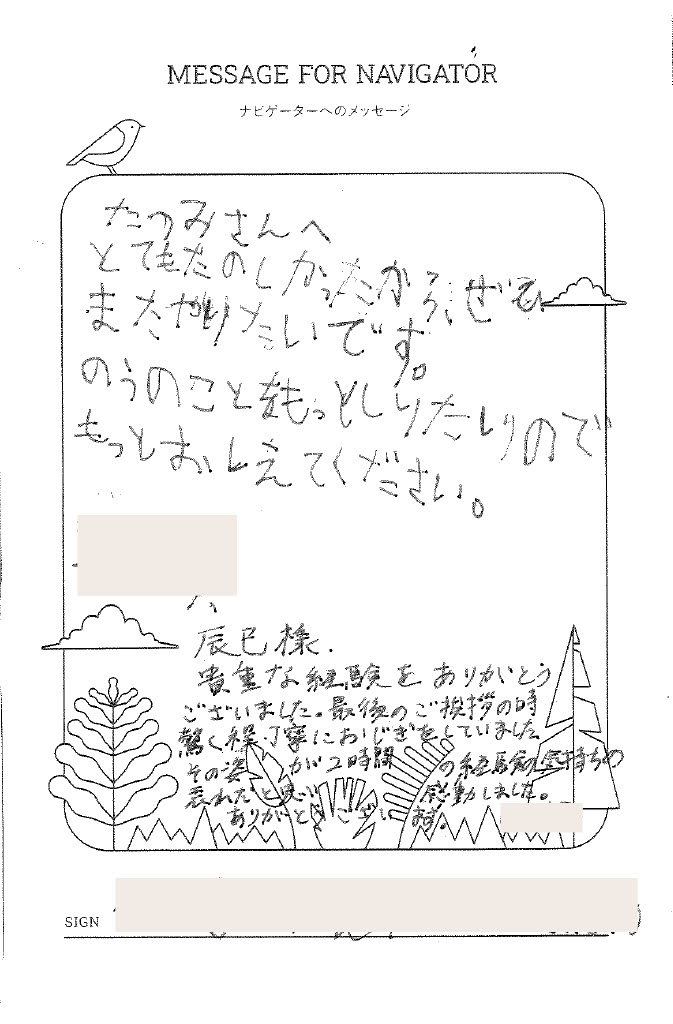 MESSAGE FOR NAVIGATOR
ナビゲーターへのメッセージ
たつみさんへ
とてもたのしかったから、ぜひ
またやりたいです。
のうのことをもっとしりたいので
もっとおしえてください。
辰巳様.
貴重な経験を ありがとう
ございました。最後のご挨拶の時
驚く程、丁寧におじぎをしていました
その姿が2時間の経験の気持ちの
表れだと思い 感動しました。
ありがとうございます。
SIGN